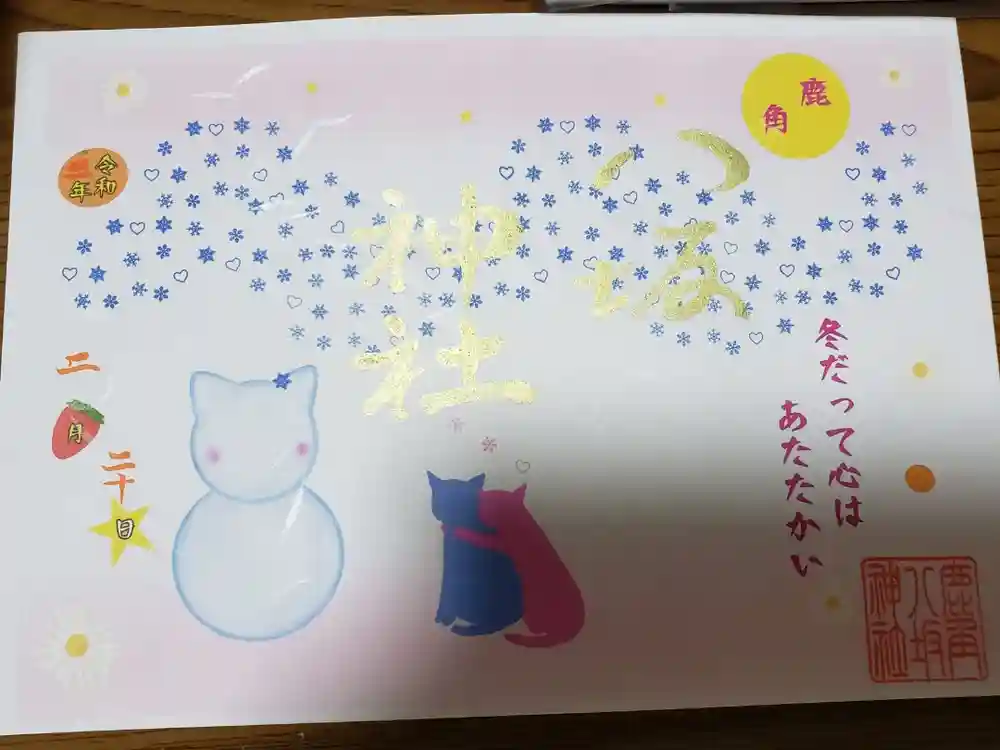 鹿角
八坂
神社
冬だって心は
あたたかい
令和
年
二月
二十日
鹿角
八坂
神社